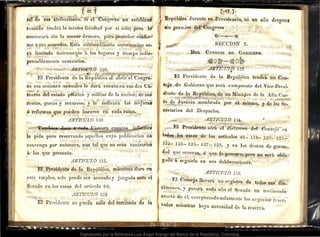 ( 46 )
ral de sus atribuciones. Si el Congreso no estubiere
reunido tendrá la misma facultad por sí solo; pero le
convocará sin la menor demora, para proceder confor-
me á sus acuerdos. Esta extraordinaria autorizacion se-
rá limitada únicamente á los lugares y tiempo indis-
pensablemente necesarios.
ARTICULO 129.
El Presidente de la República al abrir el Congre-
so sus sesiones anuales le dará cuenta en sus dos Cá-
maras del estado político y militar de la nacion; de sus
rentas, gastos y recursos; y le indicará las mejoras
ó reformas que pueden hacerse en cada ramo.
ARTICULO 130
Tambien dará á cada Cámara cuantos informes
le pida pero reservando aquellos cuya publicacion no
convenga por entonces, con tal que no sean contrarios
á los que presenta.
ARTICULO 131.
El Presidente de la República, mientras dura en
este empleo, solo puede ser acusado y juzgado ante el
Senado en los casos del artículo 89.
ARTICULO 132
El Presidente no puede salir del territorio de la
( 47 )
República durante su Presidencia, ni un año despues
sin permiso del Congreso
SECCION 3.
DEL CONSEJO DE GOBIERNO.
ARTICULO 133
El Presidente de la República tendrá un Con-
sejo de Gobierno que será compuesto del Vice-Presi-
dente de la República, de un Ministro de la Alta Cor-
te de Justicia nombrado por él mismo, y de los Se-
cretarios del Despacho.
ARTICULO 134.
El Presidente oirá el dictámen del Consejo en
todos los casos de los artículos
y en los demas de grave-
dad que ocurran, ó que le parezca; pero no será obli-
gado á seguirle en sus deliberaciones.
ARTICULO 135.
El Consejo llevará un registro de todos sus dic-
támenes, y pasará cada año al Senado un testimonio
exacto de él, exceptuando solamente los negocios reser-
vados mientras haya necesidad de la reserva.
Digitalizado por la Biblioteca Luis Ángel Arango del Banco de la República, Colombia.